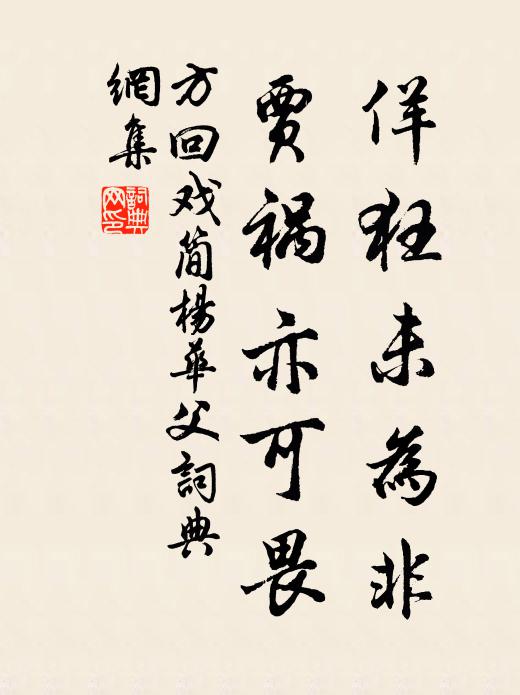 佯狂未為非
賈禍亦可畏
方回戏简楊華父詞典
網集
詞典網印